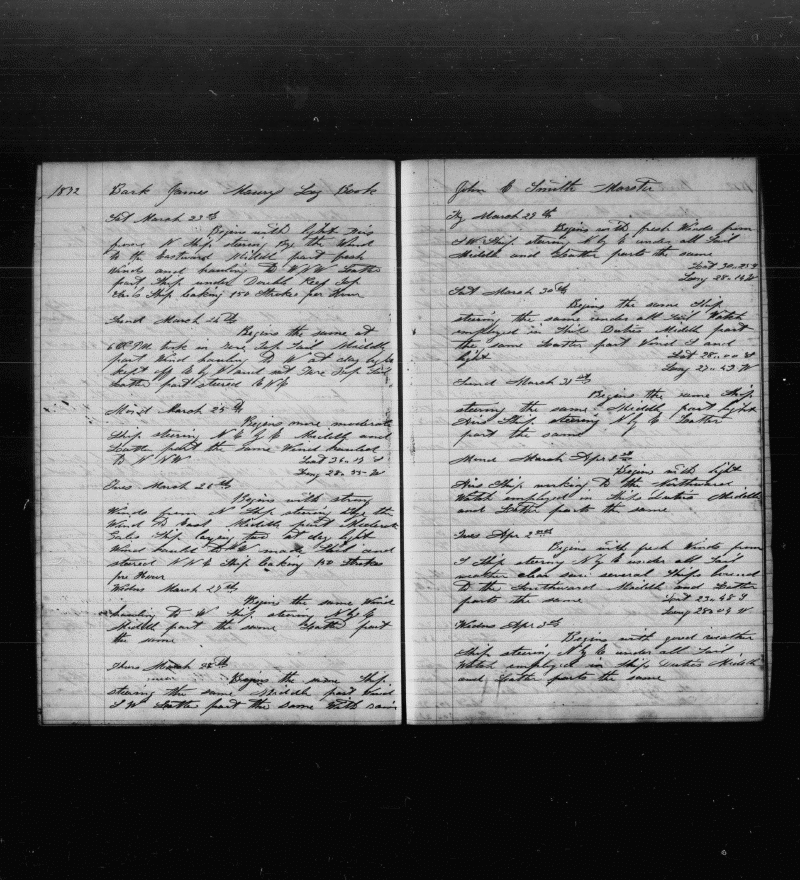 1872 Bark James Maury Log Book
Sat March 23th
Begins with light Airs
from N Ship stering By the Wind
to the Eastward Middle part fresh
winds and hauling to WNW Latter
part Ship under Double Reef Top
Sails Ship leaking 150 Strokes per hour
Sund March 24th
Begins the same at
6 PM took in Top Sail Middle
part Wind hauling to W at day light
kept off E by N and set Top Sail
Latter part stered ENE
Mond March 25th
Begins more moderate
Ship stering N E by E Middle and
Latter part the same Wind hauled
to W NW Lat 36
Long 28
Tues March 26th
Begins with strong
Winds from N Ship stering by the
Wind to East Middle part Moderate
Gales Ship laying two at day light
Wind hauld to W made Sail and
stered N N E Ship leaking 150 Strokes
per Hour
Wedns March 27th
Begins the same Wind
hauling to W Ship stering N by E
Middle part the same Latter part
the same
Thurs March 28th
Begins the same Ship
stering the same Middle part Wind
S W Latter part the same With rain
John E Smith Master
Fry March 29th
Begins with fresh Winds from
S W Ship stering N by E under all Sail
Middle and Latter parts the same
Lat 30
Long 28
Sat March 30th
Begins the same Ship
stering the same under all Sail Watch
employed in Ships Duties Middle part
the same Latter part Wind S and
light Lat 28-00 S
Long 27-49 W
Sund March 31th
Begins the same Ship
stering the same Middle part light
Airs Ship stering N by E Latter
part the same
Mond March Apr
Begins with light
Airs Ship working to the Northward
Watch employed in Ships Duties Middle
and Latter parts the same
Tues Apr 2nd
Begins with fresh Winds from
S Ship stering N by E under all Sail
weather clear saw several Ships bound
to the Southward Middle and Latter
parts the same Lat 23-48 S
Long 28-04 W
Wedns Apr 3th
Begins with good weather
Ship stering N by E under all Sail
Watch employed in Ship Duties Middle
and Latter parts the same